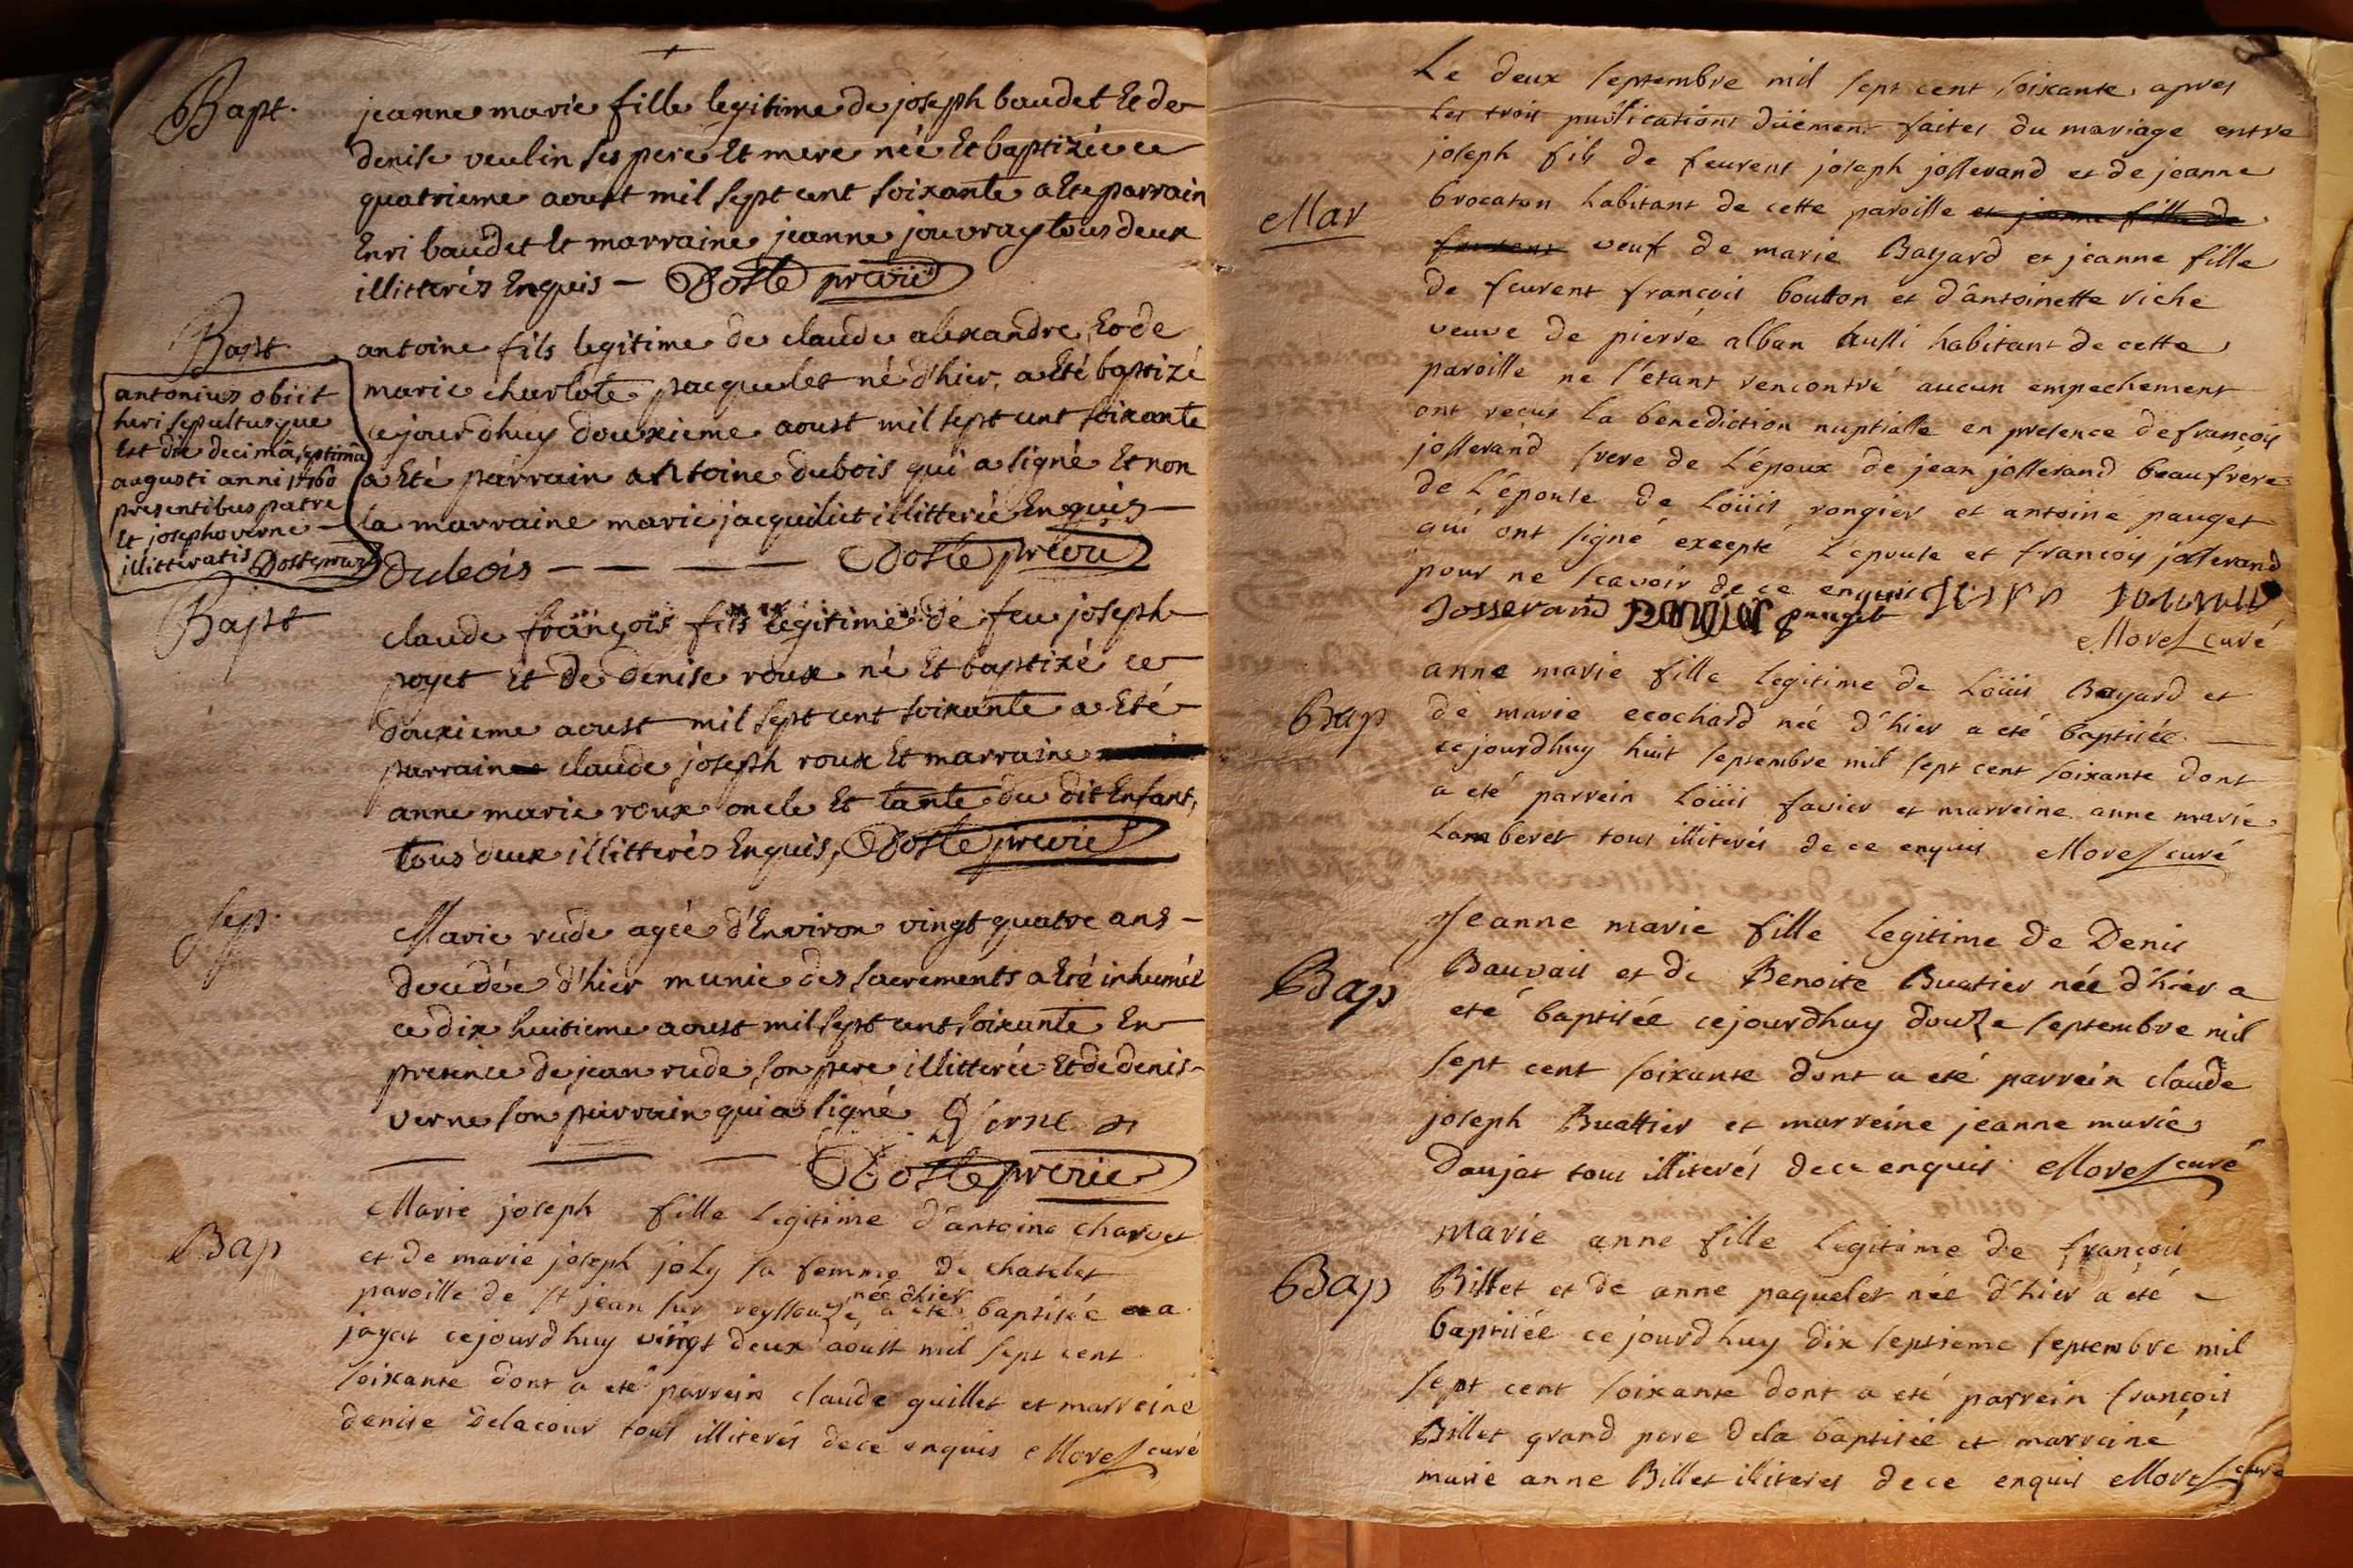 Bapt.
jeanne marie fille legitime de joseph baudet Et de
denise veulin ses pere Et mere née Et baptizée ce
quatrieme aoust mil sept cent soixante a Eté parrain
Enri baudet Et marraine jeanne jouvray tous deux
illitterés Enquis — Doste
Bapt
antoine fils legitime de claude alexandre, Et de
marie charlote pacquelet né d'hier, a Eté baptizé
cejourdhuy douxieme aoust mil sept cent soixante
a Eté parrain antoine dubois qui a signé Et non
la marraine marie jacquiliet illitterée Enquis —
dubois — — — — Doste
antonius obiit
heri sepultusque
Est die decimâ septimâ
augusti anni 1760
presentibus patre
Et josepho verne —
illitteratis Doste
Bapt
claude françois fils legitime de feu joseph
poyet Et de denise roux né Et baptizé ce
douxieme aoust mil sept cent soixante a Eté
parrain claude joseph roux Et marraine
anne marie roux oncle Et tante du dit Enfant,
tous deux illitterés Enquis, Doste
Sep.
Marie rude agée d'Environ vingt quatre ans —
decedée d'hier munie des sacrements a Eté inhumée
ce dix huitieme aoust mil sept cent soixante En
presence de jean rude son pere illitterée Et de denis
verne son parrain qui a signé Verne
Doste
Bap
Marie joseph fille legitime d'antoine charvet
et de marie joseph joly sa femme de chatelet
paroisse de st jean sur reyssouze, née d'hier a eté baptisée a
jayat cejourdhuy vingt deux aoust mil sept cent
soixante dont a eté parrein claude guillet et marreine
denise Delacour tous illiterés de ce enquis Morel curé
Le deux septembre mil sept cent soixante apres
les trois publications düement faites du mariage entre
joseph fils de feurent joseph josserand et de jeanne
Mar
brocaton habitant de cette paroisse et jeanne fille de
feurent veuf de marie Bayard et jeanne fille
de feurent françois bouton et d'antoinette riche
veuve de pierre alban aussi habitant de cette
paroisse ne s'etant rencontré aucun empechement
ont recus la benediction nuptialle en presence de françois
josserand frere de L'époux de jean josserand beaufrere
de L'épouse de Loüis rongier et antoine pauget
qui ont signé excepté L'epouse et francois josserand
pour ne scavoir de ce enquis
Josserand pauget
Morel curé
Bap
anne marie fille legitime de Loüis Bayard et
de marie ecochard née d'hier a eté baptisée —
cejourdhuy huit septembre mil sept cent soixante dont
a eté parrein Loüis favier et marreine anne marie
Lamberet tous illiterés de ce enquis Morel curé
Bap
Jeanne marie fille legitime de Denis
Bauvais et de Benoite Buatier née d'hier a
eté baptisée cejourdhuy douze septembre mil
sept cent soixante dont a eté parrein claude
joseph Buattier et marreine jeanne marie
Daujat tous illiterés de ce enquis Morel curé
Bap
Marie anne fille legitime de françois
Billet et de anne paquelet née d'hier a été
baptisée cejourdhuy dix septieme septembre mil
sept cent soixante dont a eté parrein françois
Billet grand pere dela baptisée et marreine
marie anne Billet illiteres de ce enquis Morel curé